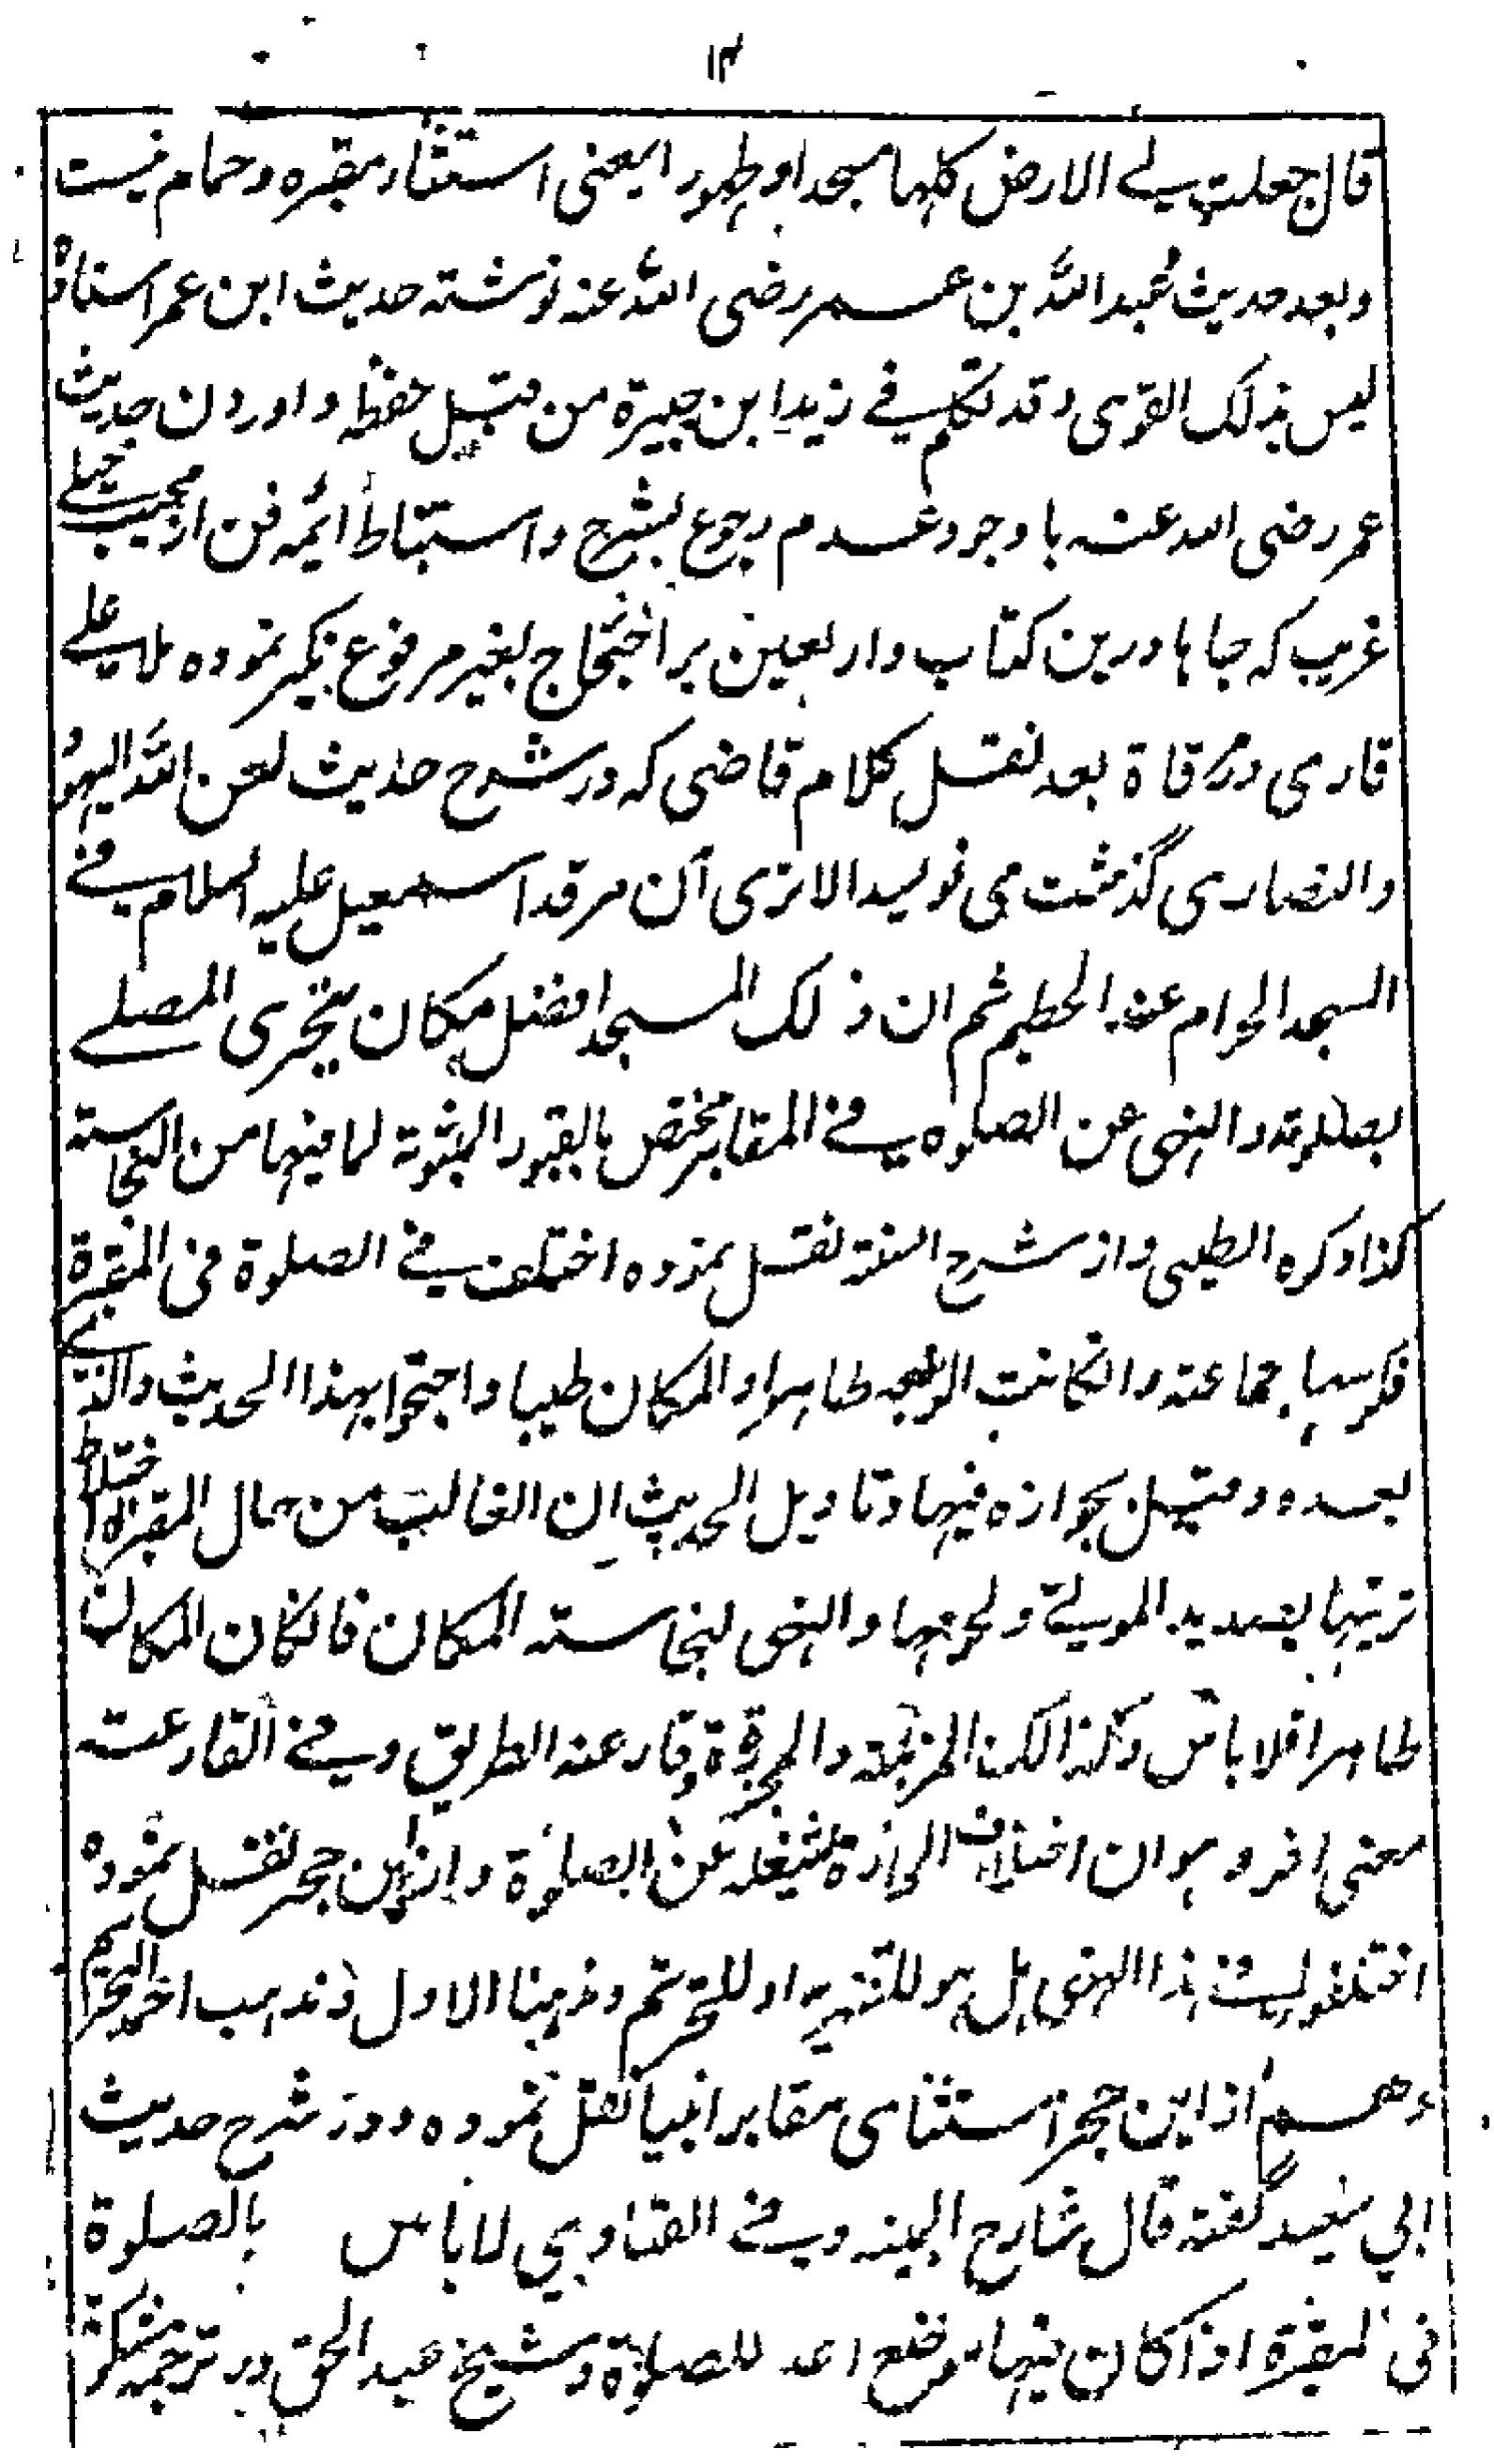 ۱۴
قال جعلت لے الارض کلہا مسجدا و طہورا یعنی استثناء مقبرہ و حمام نیست
و بعد حدیث عبد اللہ بن عمر رضی اللہ عنہ نوشتہ حدیث ابن عمر اسنادہ
لیس بذلک القوی و قد تکلم فے زید ابن جبیرة من قبل حفظہ و اوردن حدیث
عمر رضی اللہ عنہ با وجود عدم رجوع بشرح و استنباط ائمہ فن از مجیب خیلے
غریب کہ جا ہا درین کتاب و اربعین بر احتجاج بغیر مرفوع نکیر نمودہ ملا علے
قاری در مرقاة بعد نقل کلام قاضی کہ در شرح حدیث لعن اللہ الیہود
والنصاری گذشت می نویسد الا تری ان مرقد اسمعیل علیہ السلام فے
المسجد الحرام عند الحطیم ثم ان ذلک المسجد افضل مکان یتحری المصلے
بصلوتہ والنہی عن الصلوہ فے المقابر مختص بالقبور المنبوثۃ لما فیہا من النجاستہ
کذا ذکرہ الطیبی و از شرح السنۃ نقل نمودہ اختلف فے الصلوة فی المقبرة
فکرہہا جماعتہ و انکانت التربہ طاہرا و المکان طیبا و احتجوا بہذا الحدیث والذے
بعدہ و قیل بجوازہ فیہا و تاویل الحدیث ان الغالب من حال المقبرة اختلاط
تربتہا بصدید الموتے و لحومہا و النہی لنجاستہ المکان فانکان المکان
طاہرا فلا باس و کذالک المزبلۃ و المجزرة و قارعہ الطریق و فے القارعتہ
معنی اخر و ہو ان اختلاف المارة یشغلہ عن الصلوة و از ابن حجر نقل نمودہ
اختلفو فے ہذا النہی ہل ہو للتنزیہ او للتحریم و مذہبنا الاول و مذہب احمد التحریم
وہم از ابن حجر استثنای مقابر انبیا نقل نمودہ و در شرح حدیث
ابی سعید گفتہ قال شارح المنیہ و فے الفتاوی لا باس بالصلوة
فی المقبرة اذا کان فیہا موضع اعد للصلوة و شیخ عبد الحق در ترجمہ مشکوة